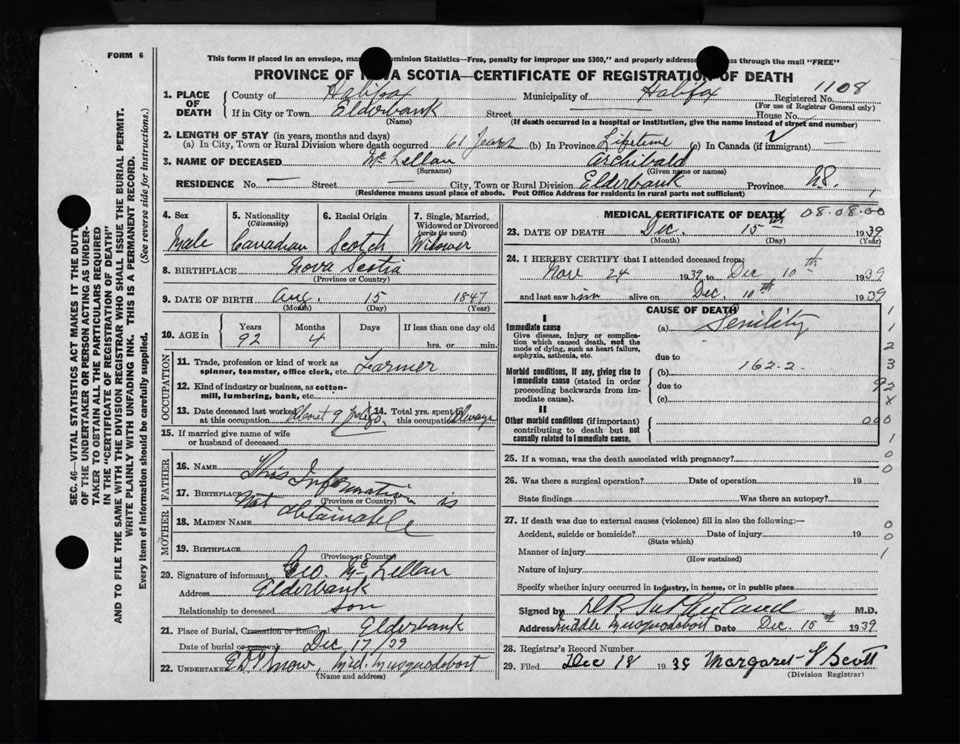 FORM 6
This form if placed in an envelope, ma Dominion Statistics—Free, penalty for improper use $300," and properly address ss through the mail "FREE"
PROVINCE OF NOVA SCOTIA—CERTIFICATE OF REGISTRATION OF DEATH
1. PLACE OF DEATH County of Halifax Municipality of Halifax Registered No. 1108
(For use of Registrar General only)
If in City or Town Elderbank Street House No.
(Name) (If death occurred in a hospital or institution, give the name instead of street and number)
2. LENGTH OF STAY (in years, months and days)
(a) In City, Town or Rural Division where death occurred 61 years (b) In Province Lifetime (c) In Canada (if immigrant) —
3. NAME OF DECEASED McLellan Archibald
(Surname) (Given name or names)
RESIDENCE No. — Street City, Town or Rural Division Elderbank Province N.S.
(Residence means usual place of abode. Post Office Address for residents in rural parts not sufficient)
SEC. 46—VITAL STATISTICS ACT MAKES IT THE DUTY
OF THE UNDERTAKER OR PERSON ACTING AS UNDER-
TAKER TO OBTAIN ALL THE PARTICULARS REQUIRED
IN THE "CERTIFICATE OF REGISTRATION OF DEATH"
AND TO FILE THE SAME WITH THE DIVISION REGISTRAR WHO SHALL ISSUE THE BURIAL PERMIT.
WRITE PLAINLY WITH UNFADING INK. THIS IS A PERMANENT RECORD.
Every item of information should be carefully supplied. (See reverse side for instructions.)
4. Sex 5. Nationality (Citizenship) 6. Racial Origin 7. Single, Married, Widowed or Divorced (write the word)
Male Canadian Scotch Widower
8. BIRTHPLACE Nova Scotia
(Province or Country)
9. DATE OF BIRTH Aug. 15 1847
(Month) (Day) (Year)
10. AGE in Years Months Days If less than one day
92 4 hrs. or min.
OCCUPATION
11. Trade, profession or kind of work as spinner, teamster, office clerk, etc. Farmer
12. Kind of industry or business, as cotton-mill, lumbering, bank, etc.
13. Date deceased last worked at this occupation About 9 14. Total yrs. spent at this occupation Always
15. If married give name of wife or husband of deceased
FATHER
16. Name This Information is
17. Birthplace Not obtainable
(Province or Country)
MOTHER
18. MAIDEN NAME
19. BIRTHPLACE
(Province or Country)
20. Signature of informant Geo. McLellan
Address Elderbank
Relationship to deceased Son
21. Place of Burial, Cremation or Removal Elderbank
Date of burial or removal Dec 17/39
22. Undertaker Mid. Musquodoboit
(Name and address)
MEDICAL CERTIFICATE OF DEATH 08.08.00
23. DATE OF DEATH Dec. 15th 1939
(Month) (Day) (Year)
24. I HEREBY CERTIFY that I attended deceased from:
Nov 24 1939 to Dec 10th 1939
and last saw him alive on Dec. 10th 1939
CAUSE OF DEATH
I
Immediate cause (a) Senility
Give disease, injury or complication which caused death, not the mode of dying, such as heart failure, asphyxia, asthenia, etc.
due to
Morbid conditions, if any, giving rise to immediate cause (stated in order proceeding backwards from immediate cause). (b) 162-2
due to
(c)
II
Other morbid conditions (if important) contributing to death but not causally related to immediate cause.
1
1
2
3
92
X
000
1
0
0
25. If a woman, was the death associated with pregnancy?
26. Was there a surgical operation? Date of operation 19
State findings Was there an autopsy?
27. If death was due to external causes (violence) fill in also the following:—
Accident, suicide or homicide? Date of injury 19
(State which)
Manner of injury
(How sustained)
Nature of injury
0
0
1
Specify whether injury occurred in Industry, in home, or in public place
Signed by D R Sutherland M.D.
Address Middle Musquodoboit Date Dec. 15th 1939
28. Registrar's Record Number
29. Filed Dec 18 1939 Margaret Scott
(Division Registrar)